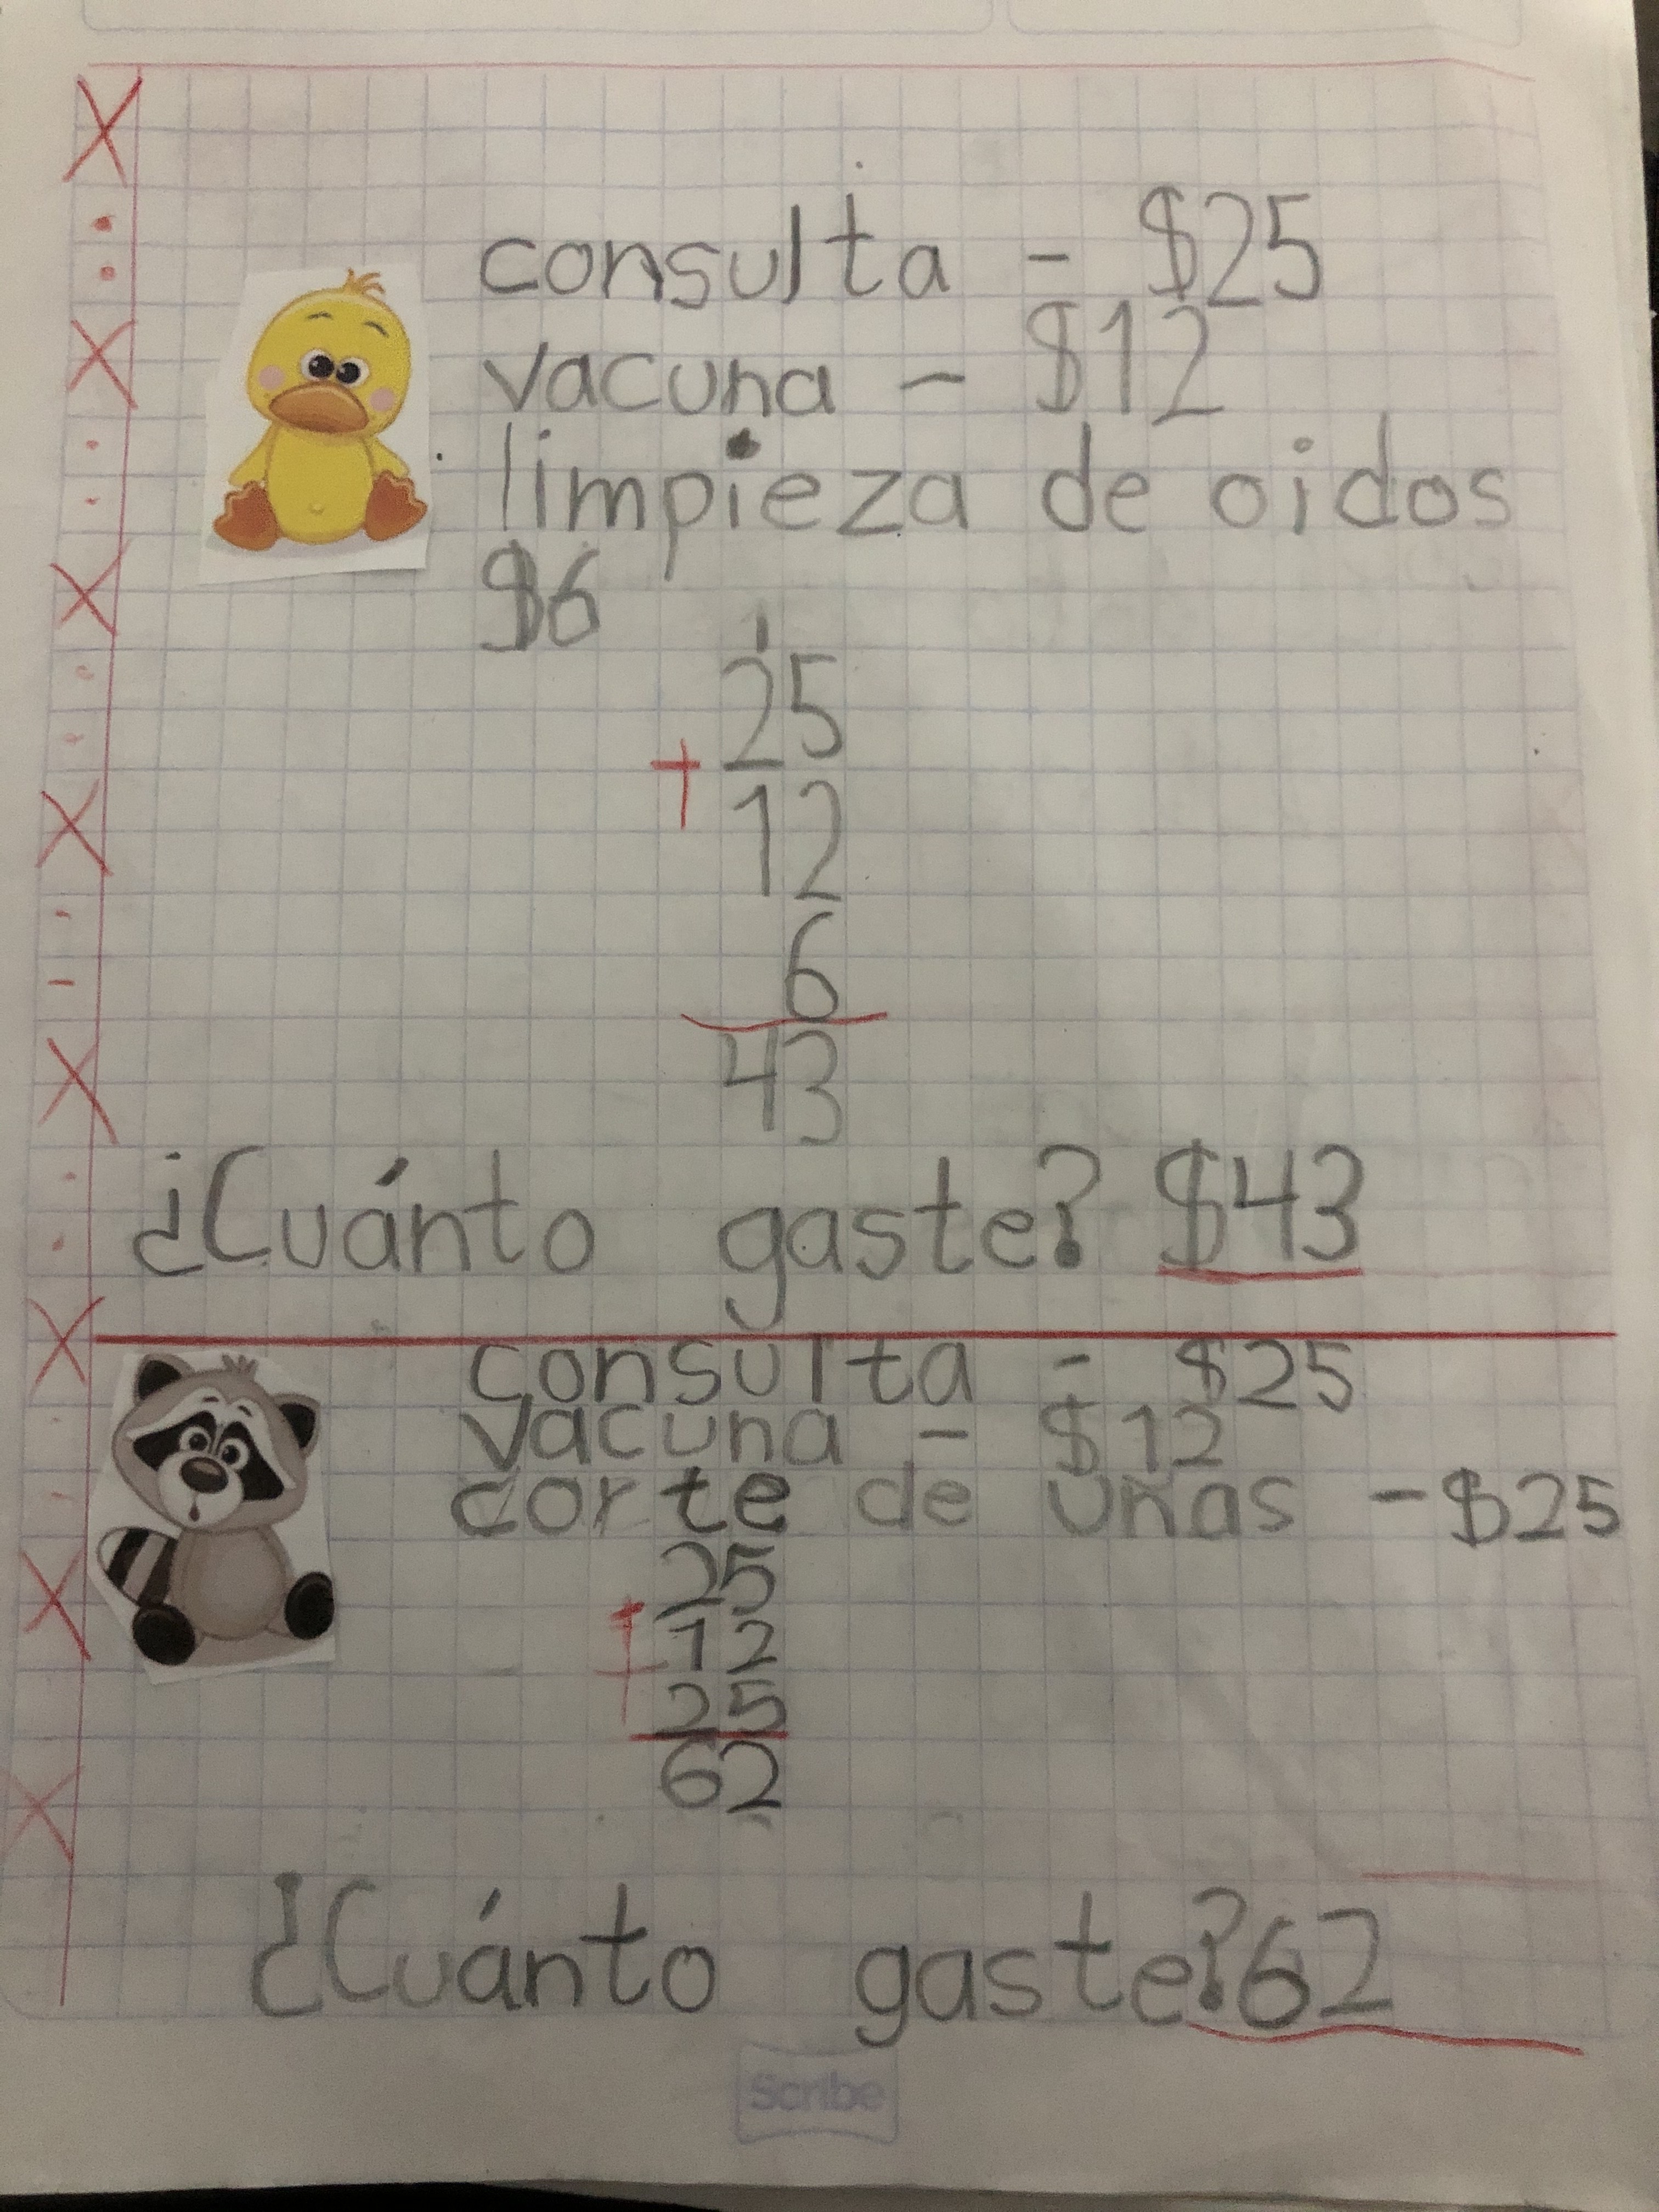 consulta - $25
vacuna - $12
limpieza de oidos
$6
1
25
+
12
6
43
¿Cuánto gaste? $43
consulta - $25
vacuna - $12
corte de uñas - $25
25
+ 12
25
62
¿Cuánto gaste? 62
Scribe